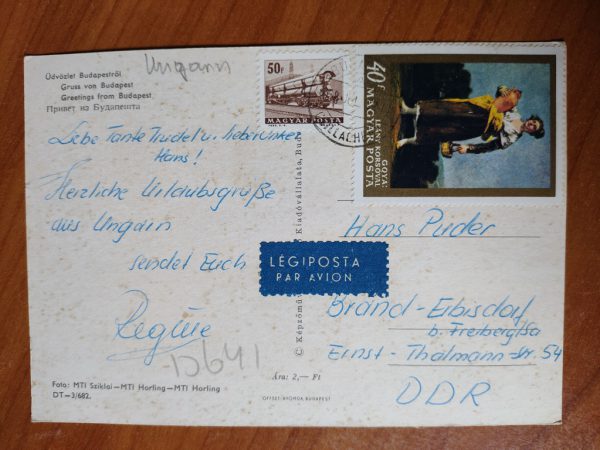 Üdvözlet Budapestről
Gruss von Budapest
Greetings from Budapest
Привет из Будапешта
Ungarn
Liebe Tante Trudel u. lieber
Hans!
Herzliche Urlaubsgrüße
aus Ungarn
sendet Euch
Regine
D641
Foto: MTI Sziklai—MTI Horling—MTI Horling
DT—3/682.
Ára: 2,— Ft
OFFSET-NYOMDA BUDAPEST
© Képzőmű Kiadóvállalata, Bud
50F
MAGYAR POSTA
40F
MAGYAR POSTA
GOYA:
LEÁNY KORSÓVAL
LÉGIPOSTA
PAR AVION
Hans Puder
Brand-Erbisdorf
b. Freiberg/Sa
Ernst-Thälmann-Str. 54
DDR